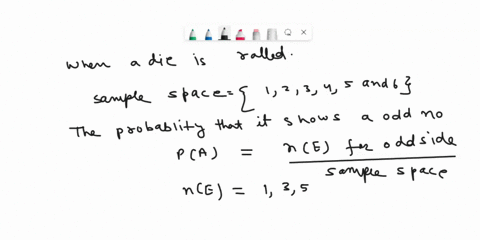 when a die is rolled.
sample space = { 1, 2, 3, 4, 5 and 6 }
The probablity that it shows a odd no
P(A) = n(E) for odd side / sample space
n(E) = 1, 3, 5